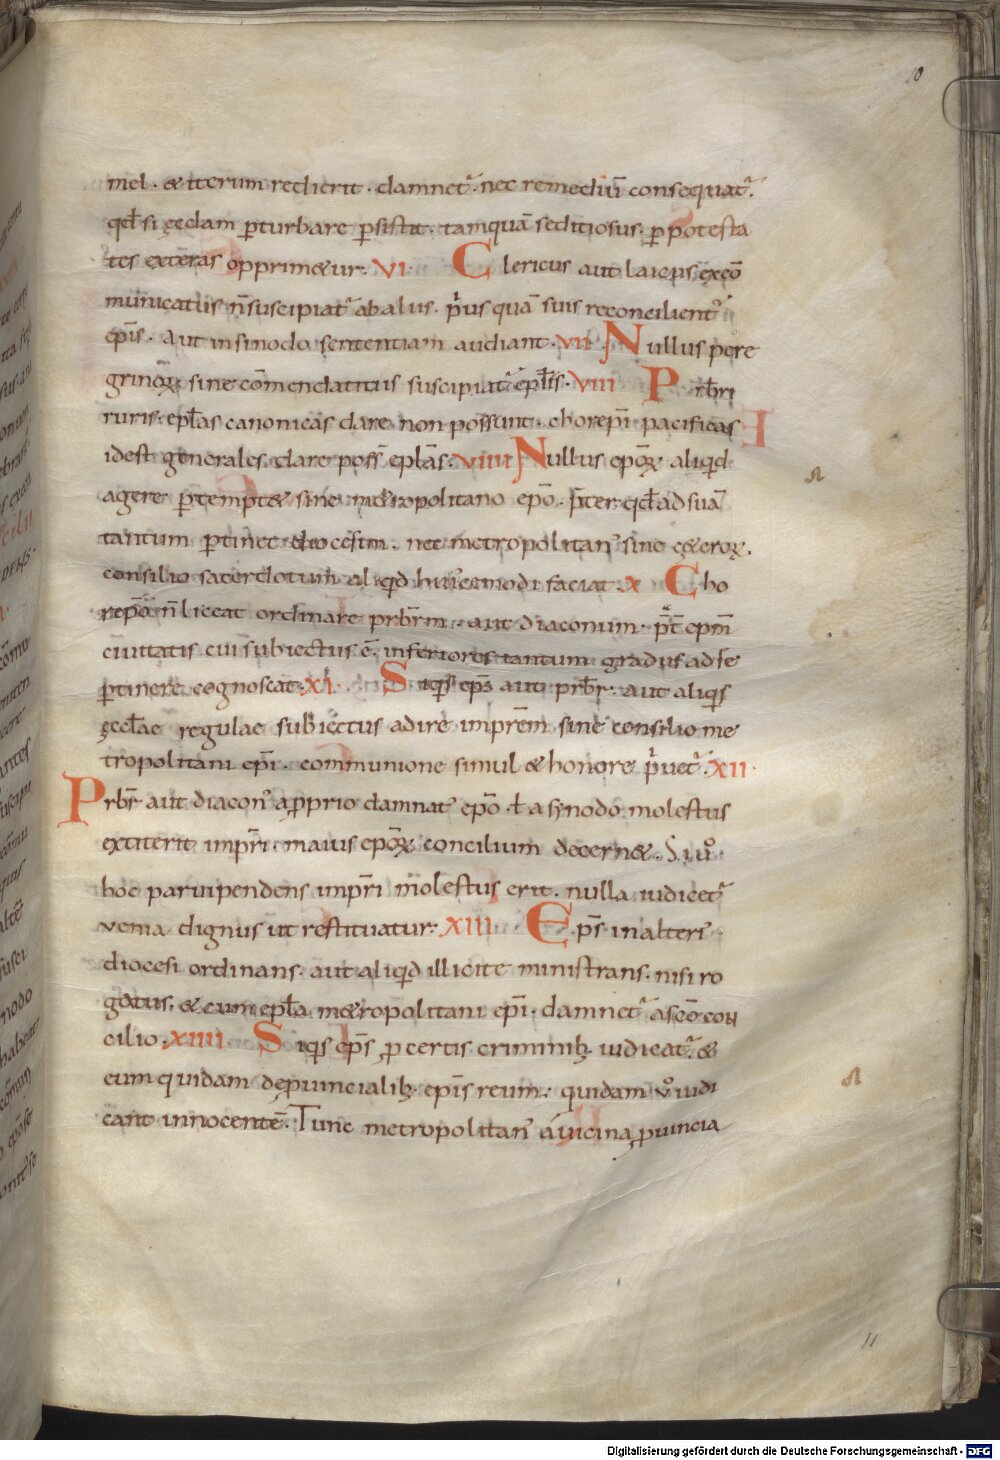 10
mel · & iterum redierit · damnet᷑ · nec remediū consequat᷑ ·
qđ si ęcclam ꝑturbare ꝑsistit · tamquā seditiosus · ꝑ potesta
tes exteras opprim&ur · VI · Clericus aut laicus excō
municatus ñ suscipiat᷑ ab alus · p̍us quā suis reconcilient᷑
ep̄is · Aut in sinodo sententiam audiant · VII Nullus pere
grinoꝝ sine cōmendatitus suscipiat᷑ epl̄is · VIII Prb̄ri
ruris · epl̄as canonicas dare non possunt · chorep̄i pacificas
id est generales dare poss̄ epl̄as · VIIII Nullus ep̄oꝝ aliqd
agere ꝑtempt& sine m&ropolitano ep̄o · p̄ter qđ ad suā
tantum ꝑtinet diocesim · nec metropolitan᾽ sine c&eroꝝ ·
consilio sacerdotum aliqd hui᾽cemodi faciat · X Cho
rep̄o ñ liceat ordinare prb̄rm · aut diaconum · p̄t ep̄m
ciuitatis cui subiectus ē · inferiores tantum gradus ad se
ꝑtinere cognoscat · XI · Siqs ep̄s aut prb̄r · aut aliqs
ęccl̄ae regulae subiectus adire impr̄em sine consilio me
tropolitani ep̄i · communione simul & honore p̍uet᷑ · XII ·
Prb̄r aut diacon᾽ a ꝓprio damnat᾽ ep̄o · ł a synodo molestus
extiterit impr̄i · maius ep̄oꝝ concilium decern& · Si uͦ
hoc paruipendens impr̄i molestus erit · nulla iudicet᷑
uenia dignus ut restituatur · XIII · Ep̄s in alteri᾽
diocesi ordinans · aut aliqd illicite ministrans · nisi ro
gatus · & cum epl̄a m&ropolitani ep̄i · damnet᷑ a sc̄o con
cilio · XIIII · Siqs ep̄s ꝓ certis criminib; iudicat᷑ · &
eum quidam de ꝓuincialib; ep̄is reum · quidam uͦ iudi
cant innocentē · Tunc metropolitan᾽ a uicina ꝓuincia
11
Digitalisierung gefördert durch die Deutsche Forschungsgemeinschaft - DFG